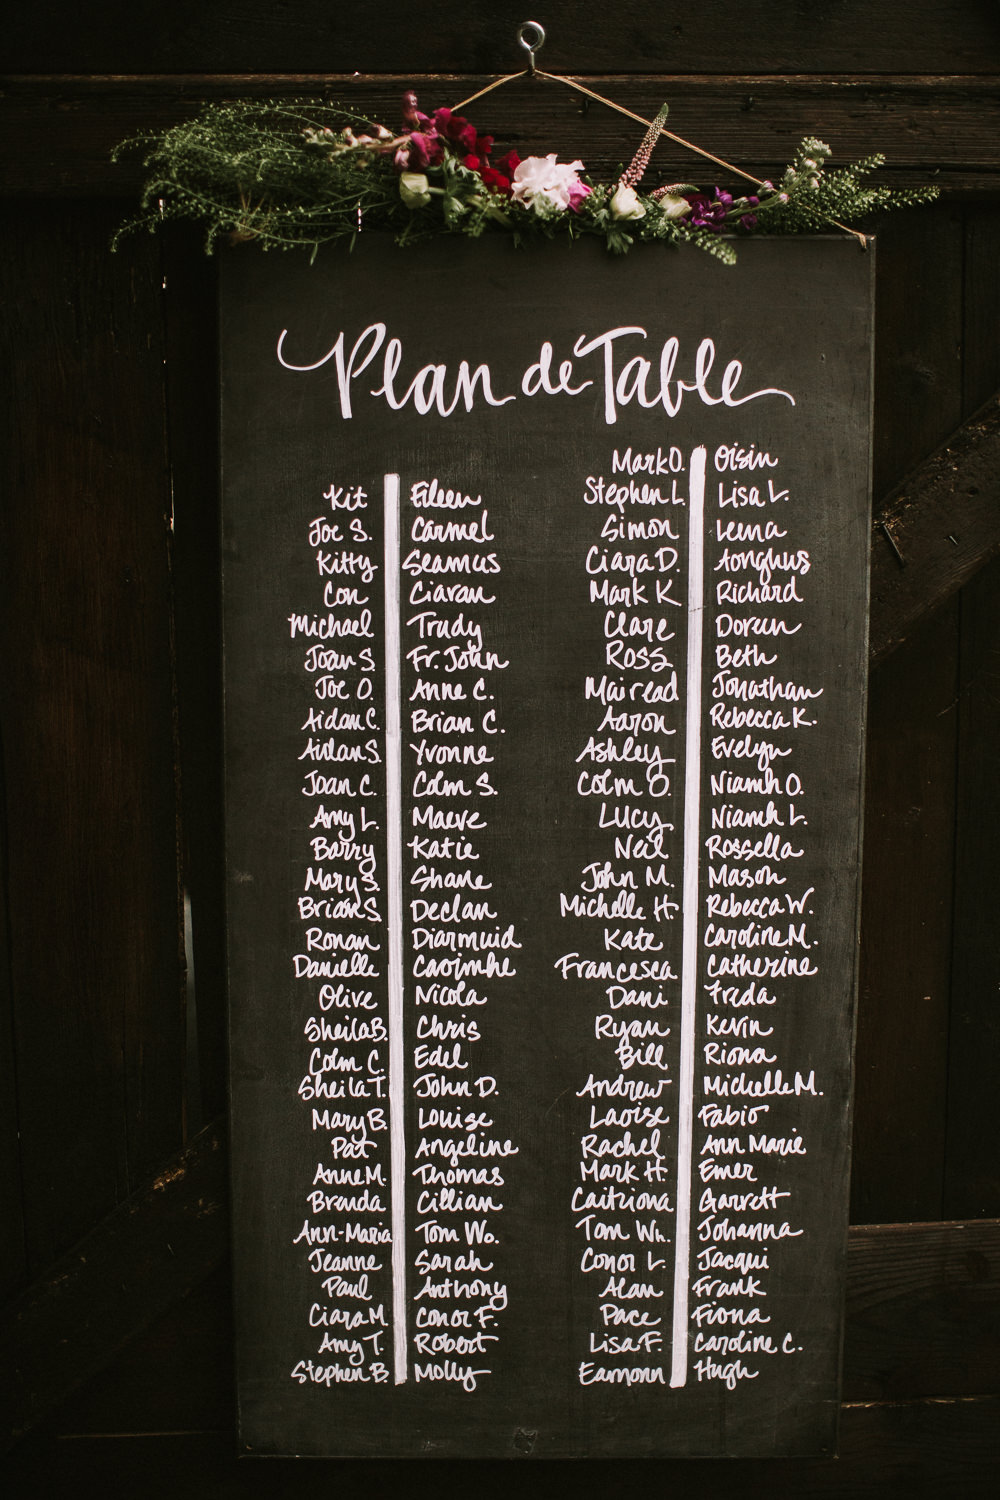 Plan de Table
Mark O. Oisin
Kit Eileen Stephen L. Lisa L.
Joe S. Carmel Simon Lena
Kitty Seamus Ciara D. Aonghus
Con Ciaran Mark K Richard
Michael Trudy Clare Doreen
Joan S. Fr. John Ross Beth
Joe O. Anne C. Mairead Jonathan
Aidan C. Brian C. Aaron Rebecca K.
Aidan S. Yvonne Ashley Evelyn
Joan C. Colm S. Colm O. Niamh O.
Amy L. Maeve Lucy Niamh L.
Barry Katie Neil Rossella
Mary S. Shane John M. Mason
Brian S. Declan Michelle H. Rebecca W.
Ronan Diarmuid Kate Caroline M.
Danielle Caoimhe Francesca Catherine
Olive Nicola Dani Freda
Sheila B. Chris Ryan Kevin
Colm C. Edel Bill Riona
Sheila T. John D. Andrew Michelle M.
Mary B. Louise Laoise Fabio
Pat Angeline Rachel Ann Marie
Anne M. Thomas Mark H. Emer
Brenda Cillian Caitriona Garrett
Ann-Maria Tom Wo. Tom Wh. Johanna
Jeanne Sarah Conor L. Jacqui
Paul Anthony Alan Frank
Ciara M Conor F. Pace Fiona
Amy T. Robert Lisa F. Caroline C.
Stephen B. Molly Eamonn Hugh